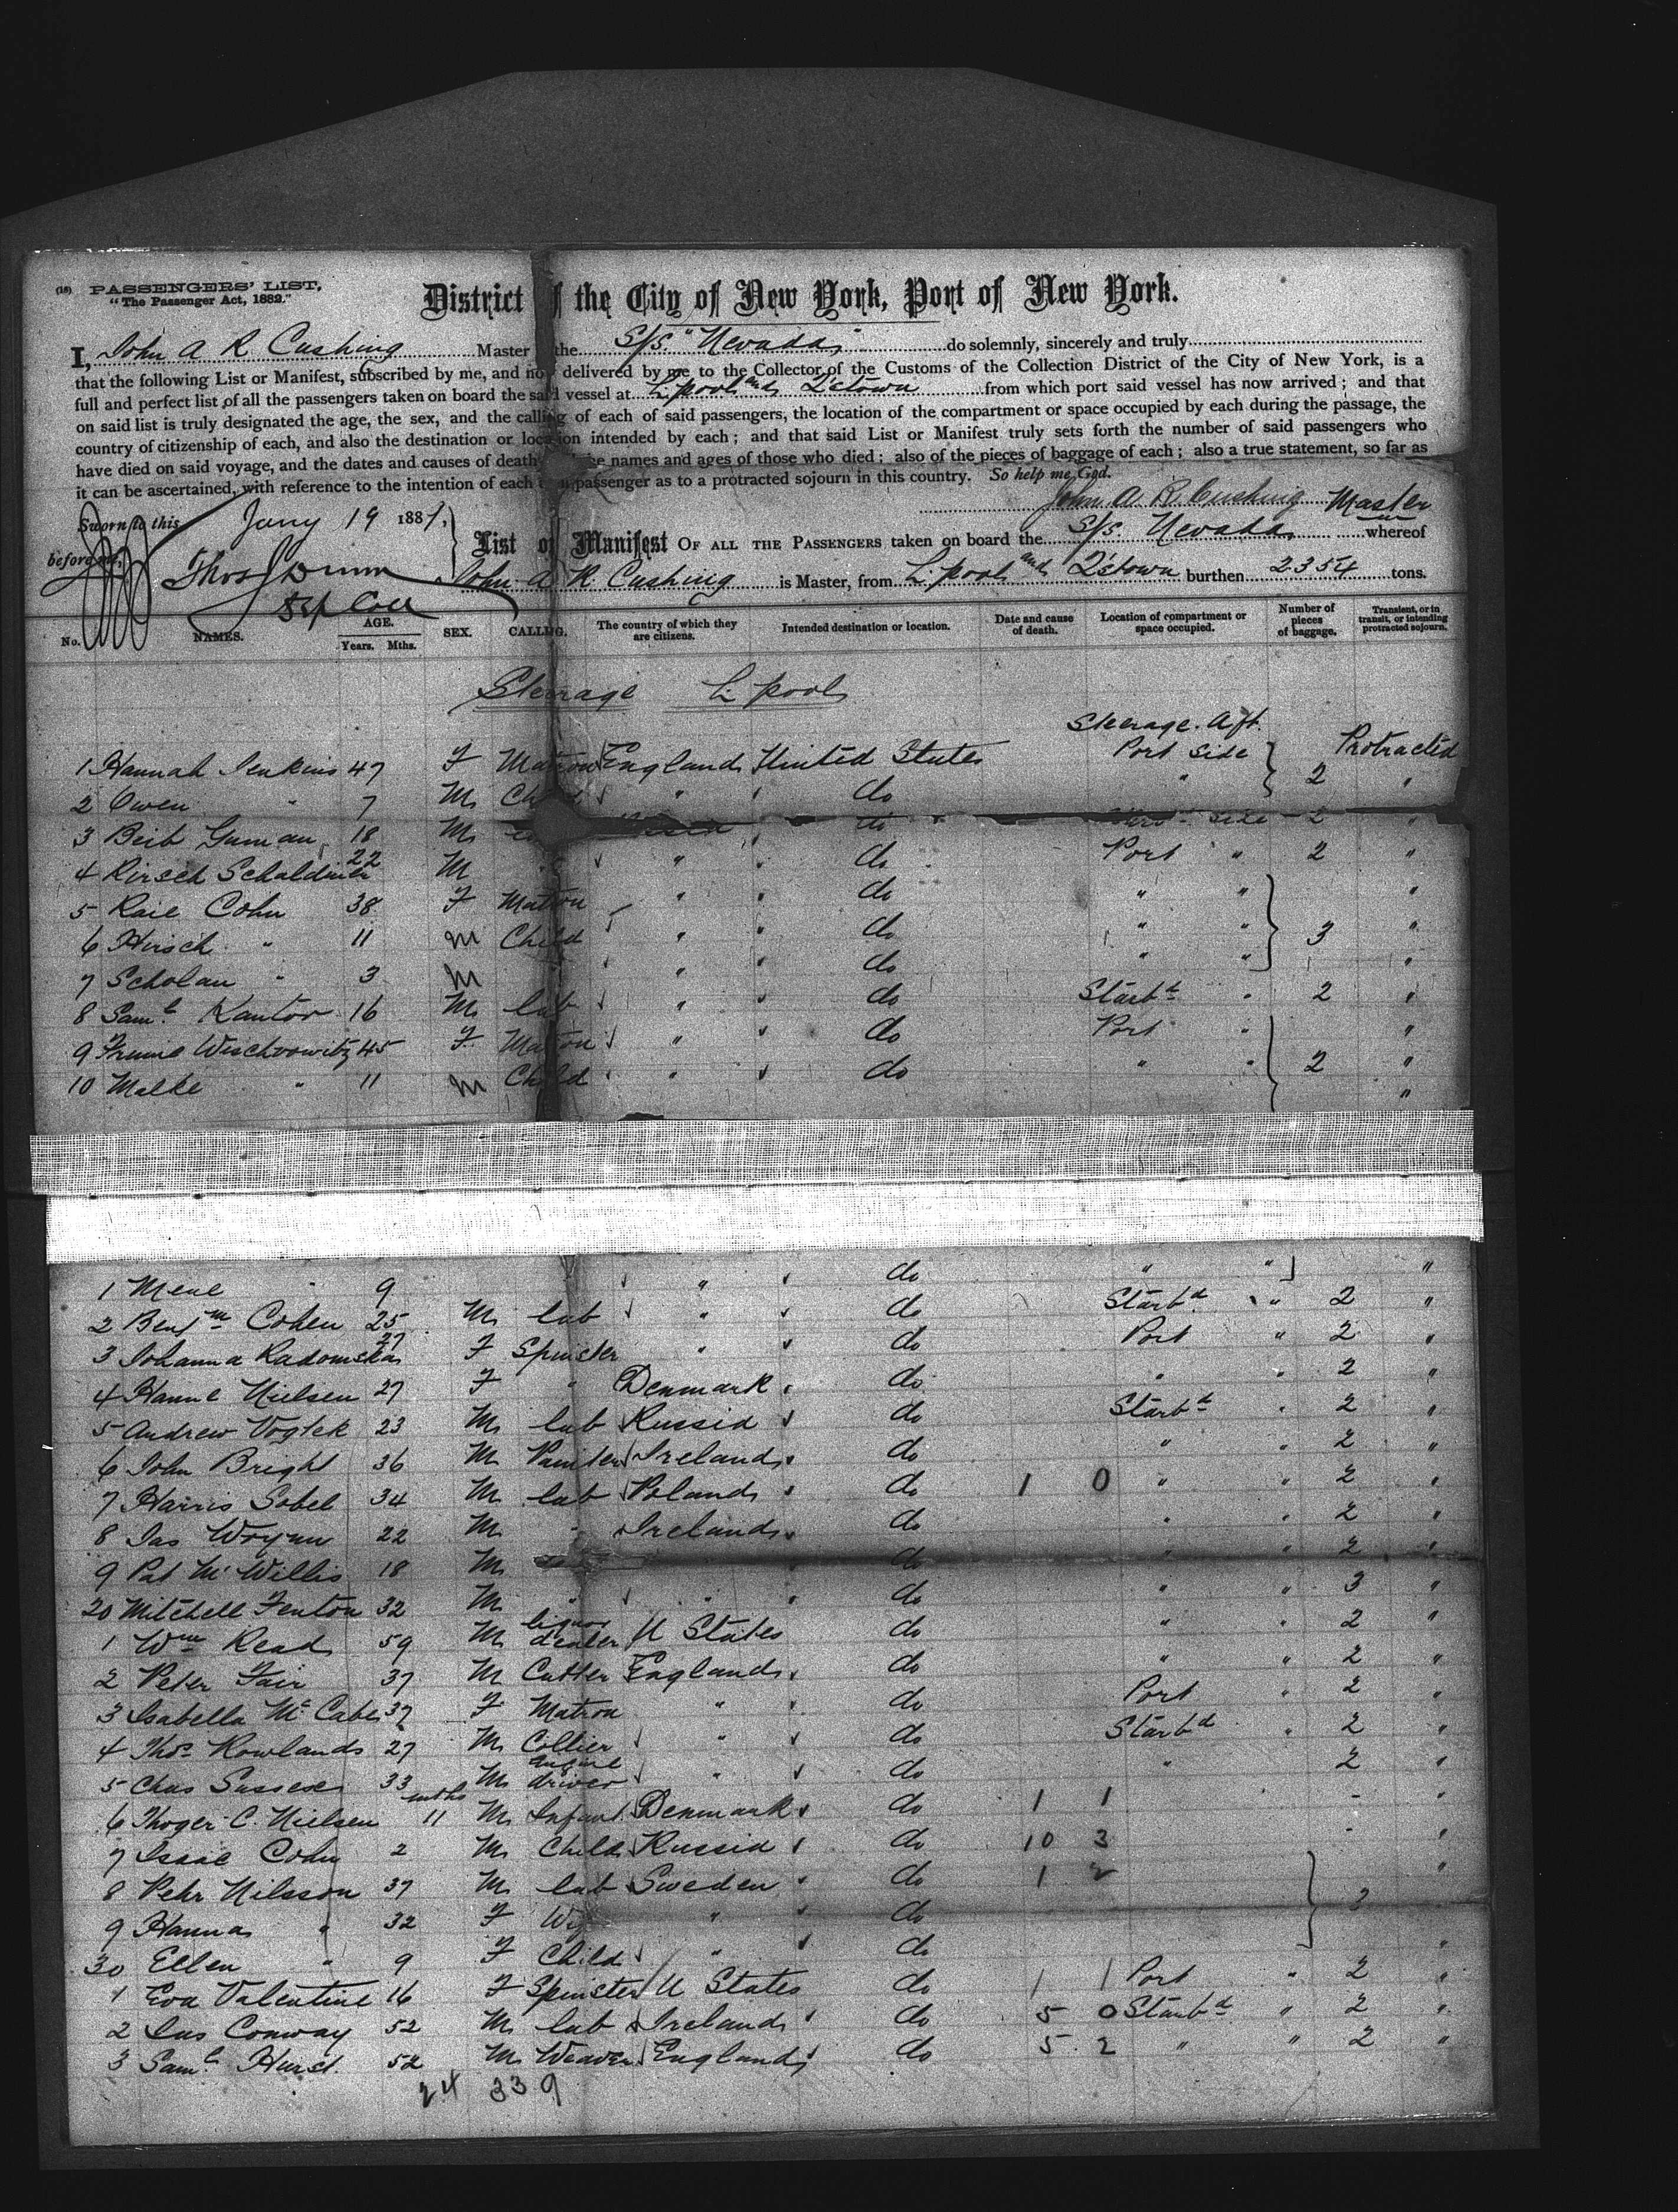 (18) PASSENGERS' LIST,
"The Passenger Act, 1882."
District of the City of New York, Port of New York.
I, John A R Cushing Master the S/s. "Nevada" do solemnly, sincerely and truly
that the following List or Manifest, subscribed by me, and now delivered by me to the Collector of the Customs of the Collection District of the City of New York, is a
full and perfect list of all the passengers taken on board the said vessel at L.pool and Q'town from which port said vessel has now arrived; and that
on said list is truly designated the age, the sex, and the calling of each of said passengers, the location of the compartment or space occupied by each during the passage, the
country of citizenship of each, and also the destination or location intended by each; and that said List or Manifest truly sets forth the number of said passengers who
have died on said voyage, and the dates and causes of death names and ages of those who died; also of the pieces of baggage of each; also a true statement, so far as
it can be ascertained, with reference to the intention of each passenger as to a protracted sojourn in this country. So help me God.
John A. R. Cushing Master
Sworn to this Jany 19 1887,
before me, Thos J Dunn
Dep Coll
List of Manifest OF ALL THE PASSENGERS taken on board the S/s. Nevada whereof
John A R. Cushing is Master, from L.pool and Q'town burthen 2354 tons.
No. NAMES. AGE. Years. Mths. SEX. CALLING. The country of which they are citizens. Intended destination or location. Date and cause of death. Location of compartment or space occupied. Number of pieces of baggage. Transient, or in transit, or intending protracted sojourn.
Steerage L.pool
Steerage. Aft.
1 Hannah Jenkins 47 F Matron England United States Port Side 2 Protracted
2 Owen " 7 M Child " do " "
3 Beib Guman 18 M do side 2 "
4 Hirsch 22 M " do Port " 2 "
5 Raie Cohn 38 F Matron " do " " "
6 Hirsch " 11 M Child " do " " 3 "
7 Scholau " 3 M " do " " "
8 Saml. Kantor 16 M lab " do Starbd " 2 "
9 Frume Wischvowitz 45 F Matron " do Port " "
10 Malke " 11 M Child " do " " 2 "
"
1 Mene " 9 " do " " "
2 Benjm Cohen 25 M lab " do Starbd " 2 "
3 Johanna Radomska 27 F Spinster " do Port " 2 "
4 Hanne Nielsen 27 F " Denmark do " " 2 "
5 Andrew Vogtek 23 M lab Russia do Starbd " 2 "
6 John Bright 36 M Painter Ireland do " " 2 "
7 Harris Sobel 34 M lab Poland do 1 0 " " 2 "
8 Jas Wrynn 22 M " Ireland do " " 2 "
9 Pat McWillis 18 M " do " 2 "
20 Mitchell Fenton 32 M " " do " " 3 "
1 Wm Read 59 M liquor dealer U States do " " 2 "
2 Peter Fair 37 M Cutter England do " " 2 "
3 Isabella McCabe 37 F Matron " do Port " 2 "
4 Thos Rowlands 27 M Collier " do Starbd " 2 "
5 Chas Sussex 33 M engine driver " do " 2 "
6 Thoger C. Nielsen mths 11 M Infant Denmark do 1 1 - "
7 Isaac Cohn 2 M Child Russia do 10 3 - "
8 Pehr Nilsson 37 M lab Sweden do 1 2 "
9 Hanna " 32 F " do
30 Ellen " 9 F Child " do "
1 Eva Valentine 16 F Spinster U States do 1 1 Port " 2 "
2 Jas Conway 52 M lab Ireland do 5 0 Starbd " 2 "
3 Saml. Hurst 52 M Weaver England do 5 2 " " 2 "
24 339